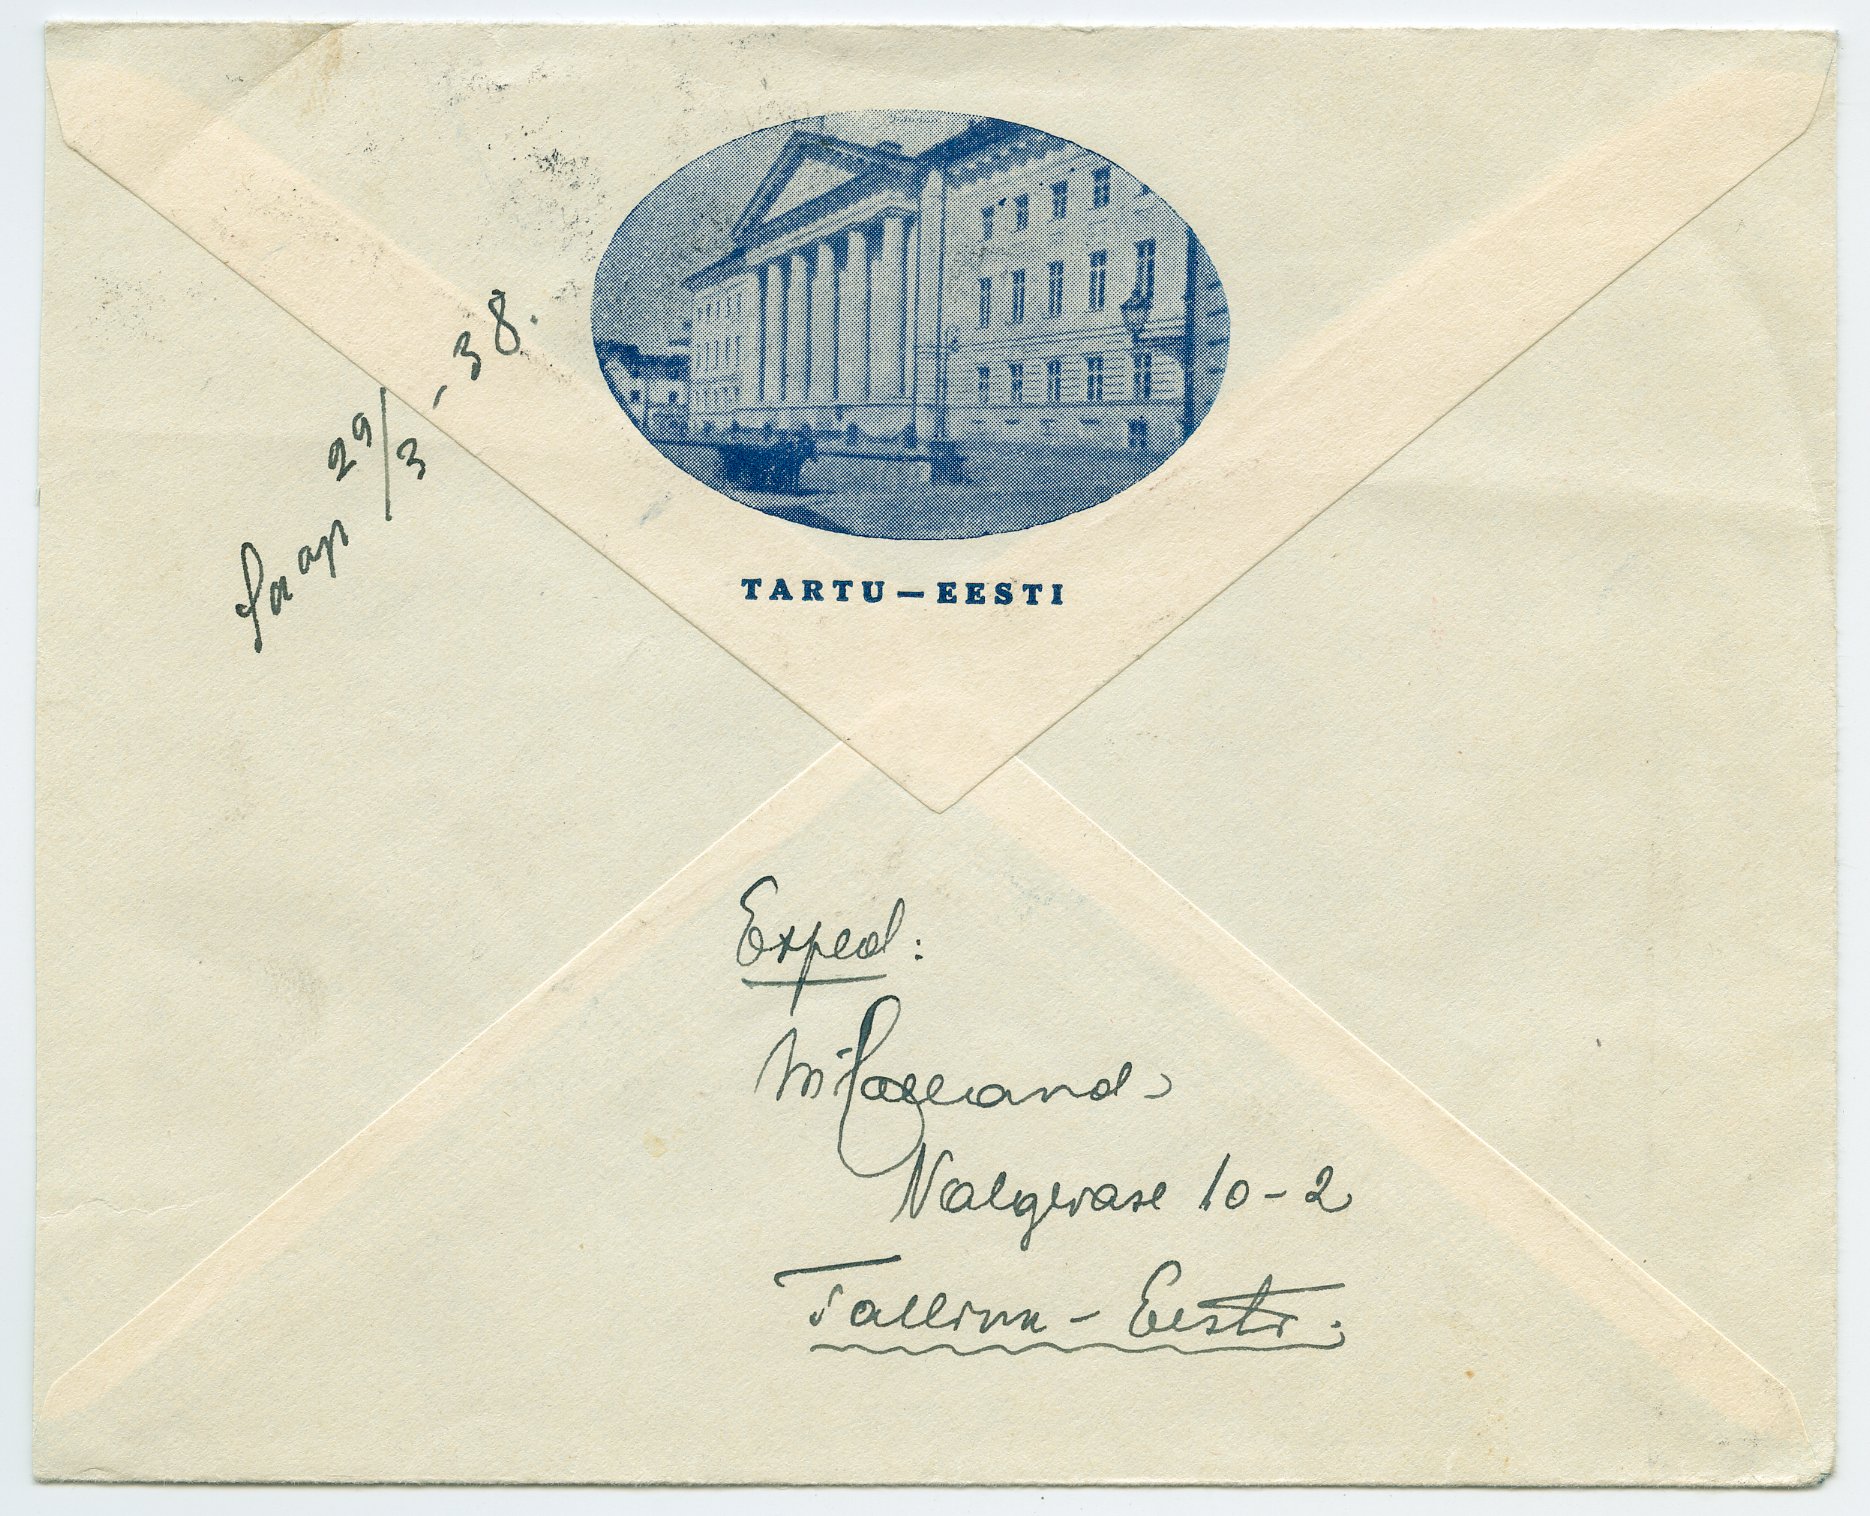 TARTU — EESTI
saap 29/3 - 38.
Exped:
Valgevase 10-2
Tallinn - Eesti.